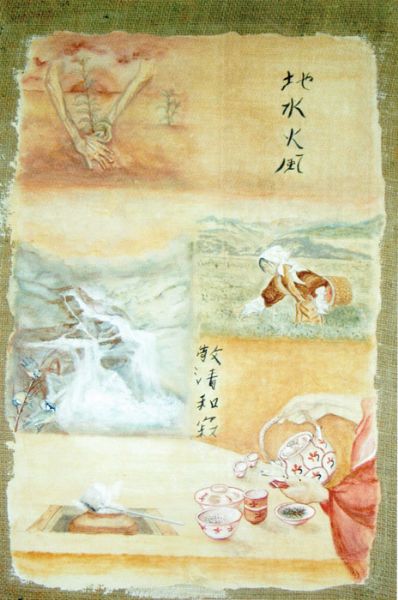 地水火風
敬清和寂